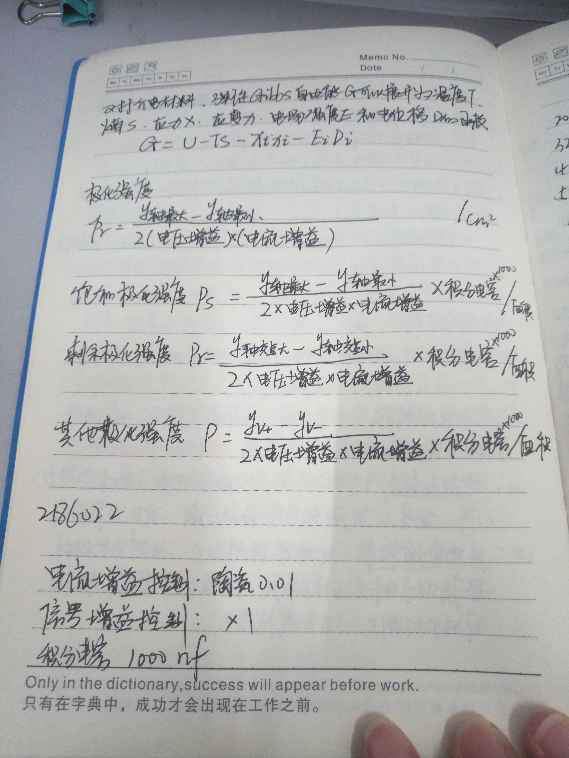 Memo No.
Date / /
对于介电材料,弹性Gibbs自由能G可以展开为温度T、
熵S、应力X、应变、电场强度E和电位移D的函数
G = U - TS - xixi - EiDi
极化强度
Pr = y轴最大 - y轴最小 / 2(电压增益)×(电流增益)
1cm²
饱和极化强度 Ps = y轴最大 - y轴最小 / 2×电压增益×电流增益 × 积分电容×1000/面积
剩余极化强度 Pr = y轴交点大 - y轴交点小 / 2×电压增益×电流增益 × 积分电容×1000/面积
其他极化强度 P = yv+ - yv- / 2×电压增益×电流增益 × 积分电容×1000/面积
2186022
电流增益控制:陶瓷0.01
信号增益控制: ×1
积分电容 1000 nf
Only in the dictionary,success will appear before work.
只有在字典中,成功才会出现在工作之前。